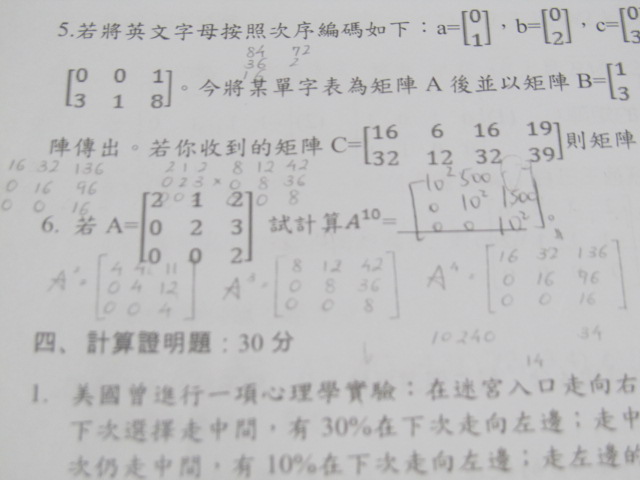 5.若將英文字母按照次序編碼如下：a=[0 1]，b=[0 2]，c=[0
84 72
36 2
16
[0 0 1
3 1 8]。今將某單字表為矩陣 A 後並以矩陣 B=[1
3
陣傳出。若你收到的矩陣 C=[16 6 16 19
32 12 32 39]則矩陣
16 32 136
0 16 96
0 0 16
2 1 2 8 12 42
0 2 3 × 0 8 36
0 8
6. 若 A=[2 1 2
0 2 3
0 0 2] 試計算A¹⁰=
10² 500
0 10² 1500
0 0 10²
。
A²=[4 4 11
0 4 12
0 0 4]
A³=[8 12 42
0 8 36
0 0 8]
A⁴=[16 32 136
0 16 96
0 0 16]
四、計算證明題：30 分
10240 34
14
1. 美國曾進行一項心理學實驗：在迷宮入口走向右
下次選擇走中間，有 30%在下次走向左邊；走中
次仍走中間，有 10%在下次走向左邊；走左邊的